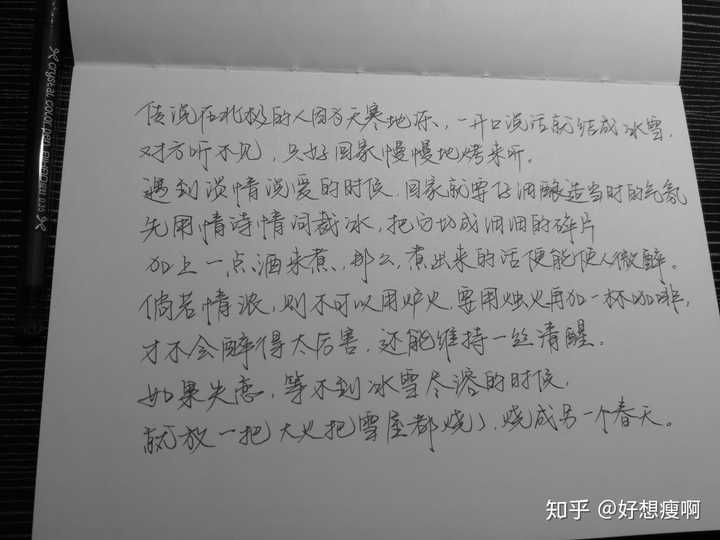 传说在北极的人因为天寒地冻、一开口说话就结成冰雪,
对方听不见,只好回家慢慢地烤来听。
遇到谈情说爱的时候.回家就要仔细酿造当时的气氛
先用情诗情词裁冰,把它切成细细的碎片
加上一点酒来煮,那么,煮出来的话便能使人微醉。
倘若情浓,则不可以用炉火,要用烛火再加一杯咖啡,
才不会醉得太厉害.还能维持一丝清醒。
如果失恋,等不到冰雪尽溶的时候.
就放一把大火把雪屋都烧了.烧成另一个春天。
CRYSTAL COLOR PEN
知乎 @好想瘦啊